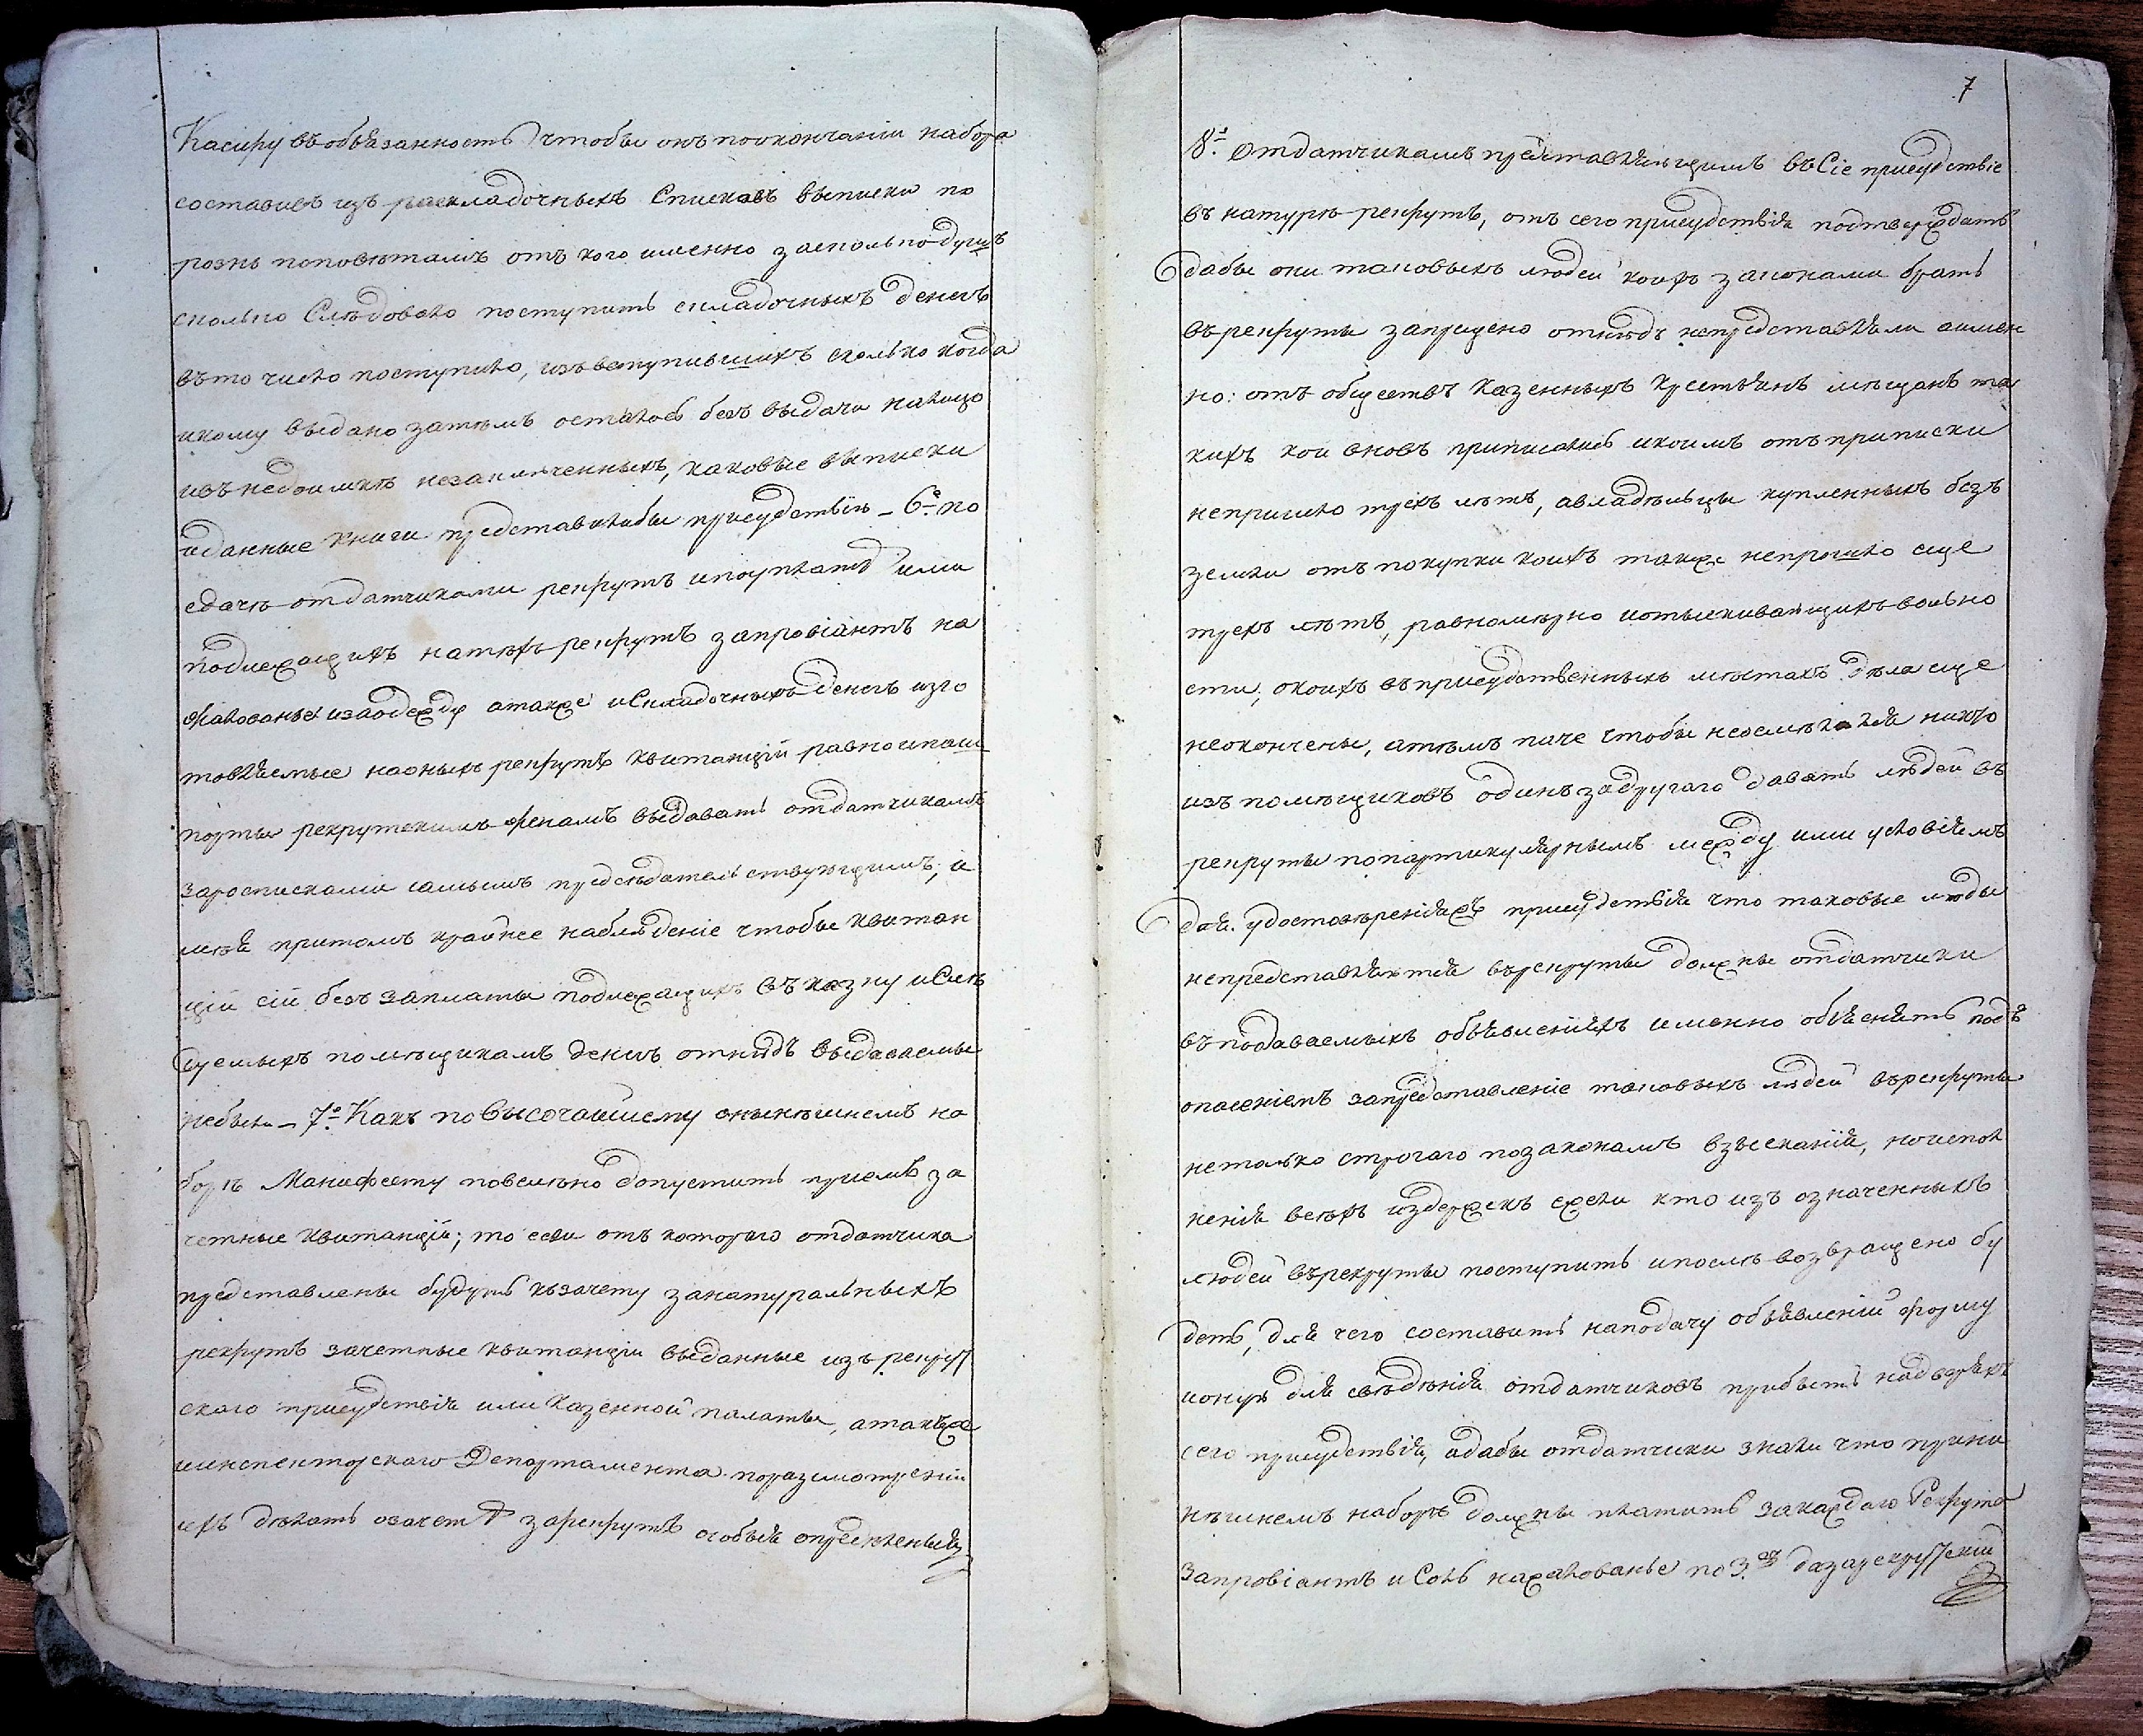 Касиру въ обязанность чтобы онъ поокончаніи набора
составивъ изъ раскладочныхъ Списковъ выписки по
рознь поповѣтамъ отъ кого именно засколько душъ
сколько Слѣдовало поступить складочныхъ денегъ
въто число поступило, изъ вступившихъ сколько когда
икому выдано затѣмъ осталось безъ выдачи налицо
ивъ недоимкѣ незаплаченныхъ, каковые выписки
иданные книги представилъбы присудствію – 6е. по
сдачѣ отдатчиками рекрутъ ипоуплатѣ ими
подлежащихъ натѣхъ рекрутъ запровіантъ на
жалованье изаодежду атакже иСкладочныхъ денегъ изго
товляемые наоныхъ рекрутъ квитанціи равно ипаш
порты рекрутскимъ женамъ выдавать отдатчикамъ
заросписками самымъ предсѣдательствующимъ, и
мѣя притомъ крайнее наблюденіе чтобы квитан
ціи сіи безъ заплаты подлежащихъ въ казну иСлѣ
дуемыхъ помѣщикамъ денегъ отнюдъ выдаваемы
небыли – 7е. Какъ по Высочайшему онынѣшнемъ на
борѣ Манифесту повелѣно допустить пріемъ за
четные квитанціи; то если отъ которого отдатчика
представлены будутъ кѣзачету занатуральныхъ
рекрутъ зачетные квитанціи выданные изъ рекрут
скаго присудствія или Казенной палаты, атакже
иинспекторскаго Департамента поразсмотреніи
ихъ дѣлать озачетѣ зарекрутъ особыя опредѣленія
7
8е. Отдатчикамъ представляющимъ въ Сіе присудствіе
въ натурѣ рекрутъ, отъ сего присудствія подтверждать
дабы они таковыхъ людей коихъ законами брать
въ рекруты запрещено отнюдъ непредставляли аимен
но: отъ обществъ казенныхъ крестьянъ мѣщанъ та
кихъ кои вновь приписались икоимъ отъ приписки
непришло трехъ лѣтъ, авладѣльцы купленныхъ безъ
земли отъ покупки коихъ также непрошло еще
трехъ лѣтъ, равномѣрно иотыскивающихъ вольно
сти, окоихъ въ присудственныхъ мѣстахъ дѣла еще
неокончены, атѣмъ паче чтобы неосмѣлился никто
изъ помѣщиковъ одинъ задругаго давать людей въ
рекруты попартикулярнымъ между ими условіямъ
для удостовѣреніяжъ присудствія что таковые люди
непредставляются върекруты должны отдатчики
въ подаваемыхъ объявленіяхъ именно объяснять подъ
опасеніемъ запредставленіе таковыхъ людей върекруты
нетолько строгаго позаконамъ взысканія, ноиспол
ненія всѣхъ издержекъ ежели кто изъ означенныхъ
людей върекруты поступитъ ипослѣ возвращено бу
детъ, для чего составить наподачу объявленій форму
ионую для свѣдѣнія отдатчиковъ прибить надверяхъ
сего присудствія, адабы отдатчики знали что прини
нѣшнемъ наборѣ должны платить закаждаго Рекрута
Запровіантъ и Соль нажалованье по 3. дазарекрутскій